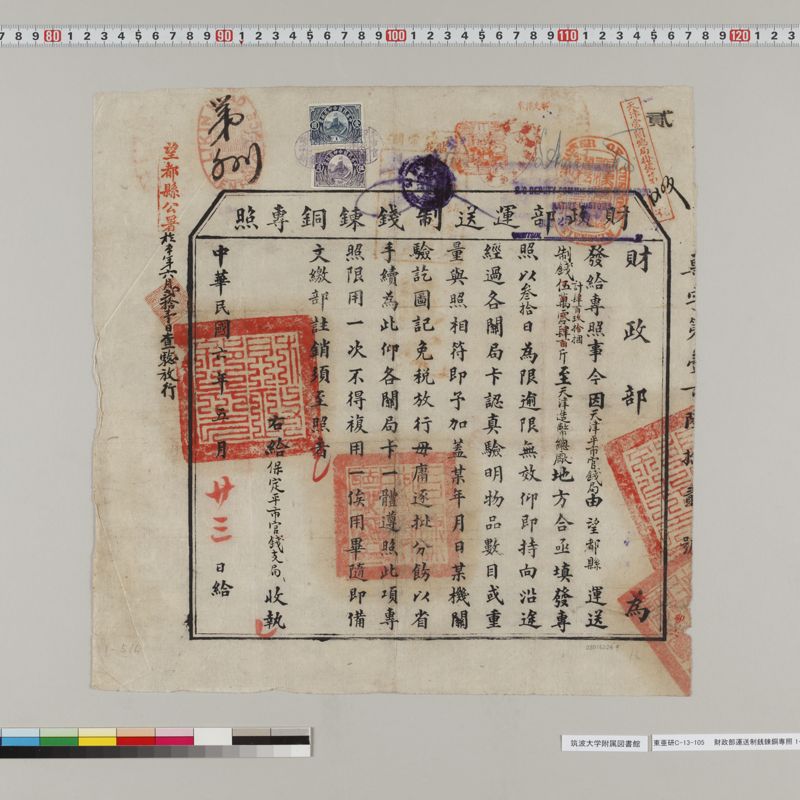 財政部運送制錢鍊銅專照
財政部 為
發給專照事今因天津平市官錢局由望都縣運送
制錢伍萬零肆百斤計肆百玖拾捆至天津造幣總廠地方合亟填發專
照以叁拾日為限逾限無效仰即持向沿途
經過各關局卡認真驗明物品數目或重
量與照相符即予加蓋某年月日某機關
驗訖圖記免稅放行毋庸逐批分飭以省
手續為此仰各關局卡一體遵照此項專
照限用一次不得複用一俟用畢隨即備
文繳部註銷須至照者
右給保定平市官錢支局收執
中華民國六年五月廿三日給
望都縣公署於
六月
日查驗放行
第
貳
DEPUTY COMM
NATIVE CUSTOMS
筑波大学附属図書館
東亜研C-13-105 財政部運送制銭錬銅専照 1-
7 8 9 80 1 2 3 4 5 6 7 8 9 90 1 2 3 4 5 6 7 8 9 100 1 2 3 4 5 6 7 8 9 110 1 2 3 4 5 6 7 8 9 120 1 2 3